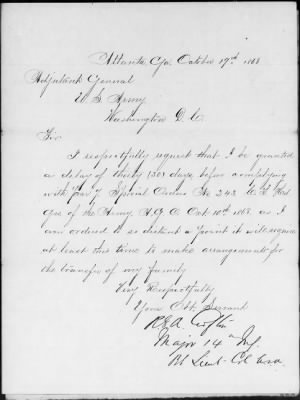 Atlanta, Ga. October 19th 1868
Adjutant General
U.S. Army
Washington D.C.
Sir
I respectfully request that I be granted
a delay of thirty (30) days, before complying
with par 7 Special Orders No 243 Hd
Qrs of the Army A.G.O. Oct. 10th 1868. as I
am ordered to so distant a point it will require
at least this time to make arrangements for
the transfer of my family
Very Respectfully
Your Obt. Servant
R.E.A. Crofton
Major 14th Inf.
Bt Lieut. Col U.S.A.